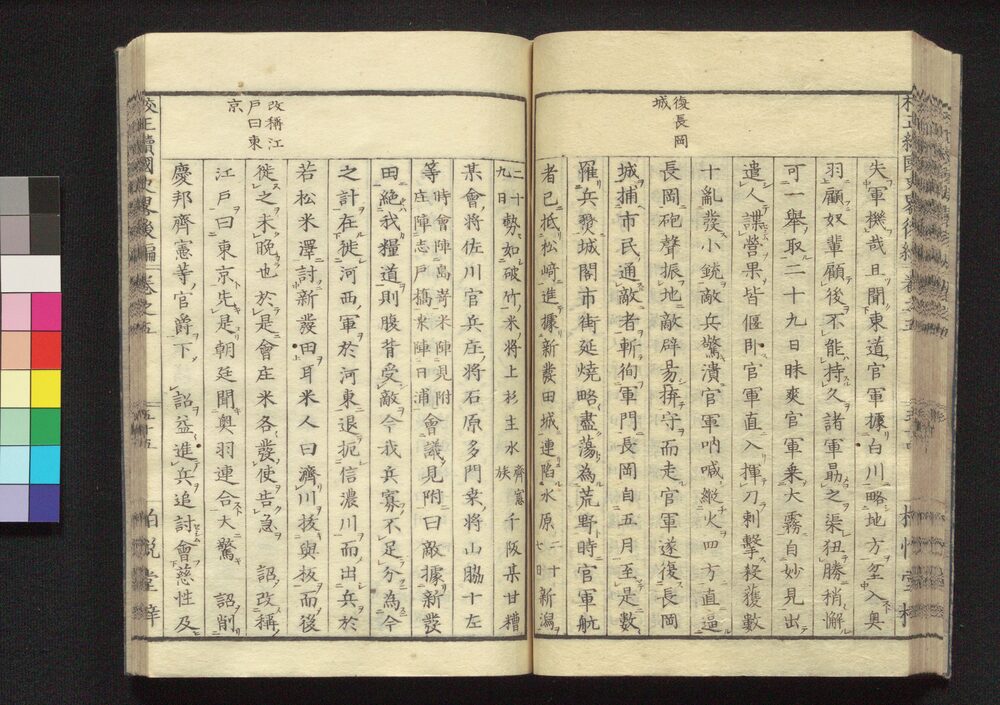 復長岡
城
失軍機哉且聞東道官軍據白川略地方至入奧
羽顧奴輩顧後不能持久諸軍勗之渠狃勝稍懈
可一舉取二十九日昧爽官軍乘大霧自妙見出
遣人諜營果皆偃卧官軍直入揮刀刺擊殺獲數
十亂發小銃敵兵驚潰官軍吶喊縱火四方直逼
長岡砲聲振地敵辟易擠守而走官軍遂復長岡
城捕市民通敵者斬徇軍門長岡自五月至是數
羅兵燹城閣市街延燒略盡蕩為荒野時官軍航
者已抵松崎進據新發田城連陷水原二十七日新瀉
二十九日勢如破竹米將上杉主水齊憲族千阪某甘糟
某會將佐川官兵庄將石原多門桒將山脇十左
等時會陣島嵜米陣見附庄陣志戶橋桒陣日浦會議見附曰敵據新發
田絕我糧道則腹背受敵今我兵寡不足分為今
之計在徙河西軍於河東退扼信濃川而出兵於
若松米澤討新發田耳米人曰濟川拔與板而後
徙之未晚也於是會庄米各發使告急 詔改稱
江戶曰東京先是朝廷聞奧羽連合大驚 詔削
慶邦齊憲等官爵下 詔益進兵追討會慈性及
改稱江
戶曰東
京
校正續國史畧後編 卷之五
五十五
柏悅堂梓